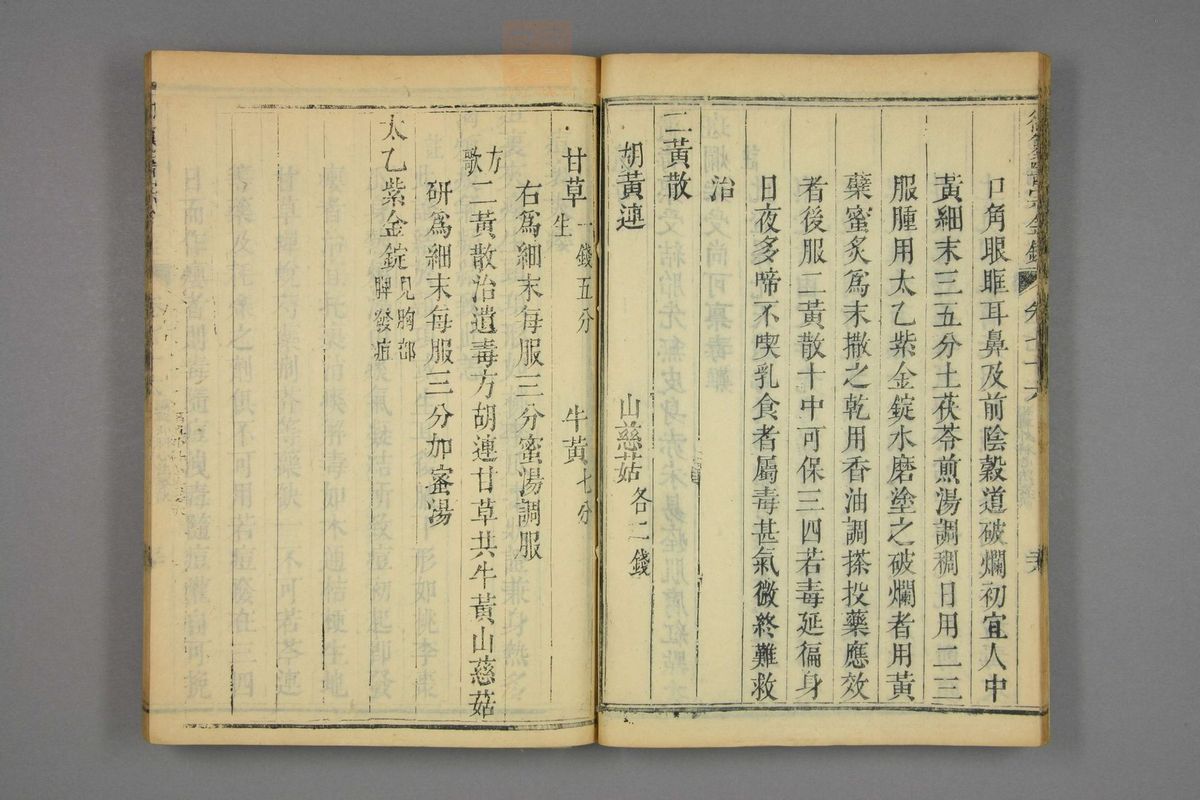 口角眼眶耳鼻及前陰穀道破爛初宜人中
黃細末三五分土茯苓煎湯調稠日用二三
服腫用太乙紫金錠水磨塗之破爛者用黃
蘗蜜炙爲末撒之乾用香油調搽投藥應效
者後服二黃散十中可保三四若毒延徧身
日夜多啼不喫乳食者屬毒甚氣微終難救
治
二黃散
胡黃連 山慈菇各二錢
甘草生一錢五分 牛黃七分
右爲細末每服三分蜜湯調服
方歌 二黃散治遺毒方胡連甘草共牛黃山慈菇
研爲細末每服三分加蜜湯
太乙紫金錠見胸部脾發疽